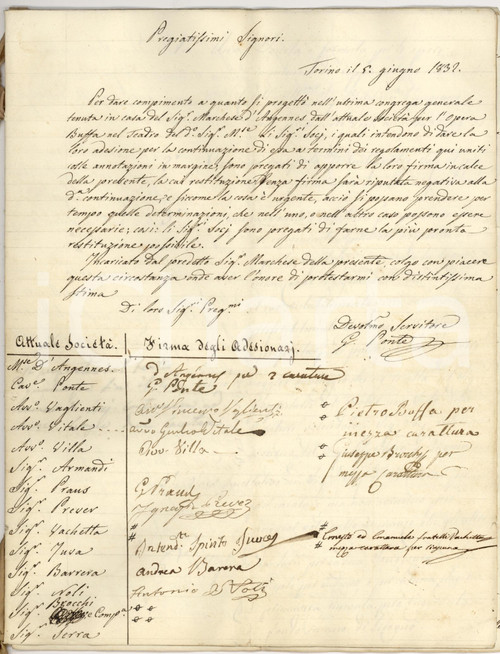 Pregiatissimi Signori.
Torino il 8. giugno 1832.
Per dare compimento a quanto si progettò nell'ultima congrega generale
tenuta in casa del Sig.r Marchese d'Angennes dall'attuale società per l'Opera
Buffa nel Teatro del d.o Sig.r M.se li Sig.ri Socj, i quali intendono di dare la
loro adesione per la continuazione di essa ai termini dei regolamenti qui uniti
colle annotazioni in margine, sono pregati di apporre la loro firma in calce
della presente, la cui restituzione senza firma sarà riputata negativa alla
d.a continuazione, e siccome la cosa è urgente, acciò si possano prendere per
tempo quelle determinazioni, che nell'uno, o nell'altro caso possono essere
necessarie; così li Sig.ri Socj sono pregati di farne la più pronta
restituzione possibile.
Incaricato dal predetto Sig.r Marchese della presente, colgo con piacere
questa circostanza onde aver l'onore di protestarmi con distintissima
stima
Di loro Sig.ri Preg.mi
Devot.mo Servitore
G. Ponte
Attuale Società. Firma degli Adesionarj.
M.se D'Angennes. D'Angennes per 2 caratture
Cav.e Ponte G. Ponte
Avv.o Vaglienti Avv. Vincenzo Vaglienti
Avv.o Vitale Avv.o Giulio Vitale
Avv.o Villa Villa
Pietro Boffa per
mezza carattura
Giuseppe Brocchi per
mezza carattura
Sig.r Armandi
Sig.r Praus G. Praus
Sig.r Prever
Sig.r Vachetta #
Sig.r Juva Spirito Juva
# Ernesto ed Emanuele fratelli Vachetta
mezza carattura per ognuno
Sig.r Barrera Andrea Barera
Sig.r Noli Antonio Noli
Sig.r Brocchi e Comp.a
Sig.r Serra